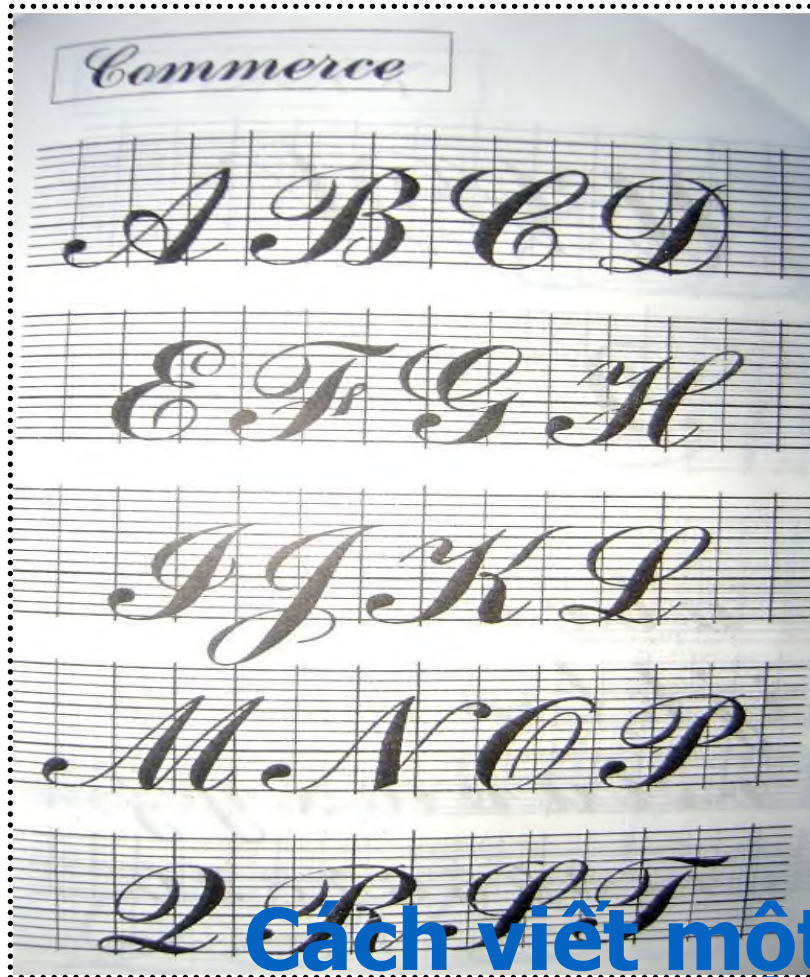 Commerce
A B C D
E F G H
I J K L
M N O P
Q R S T
Cách viết môt